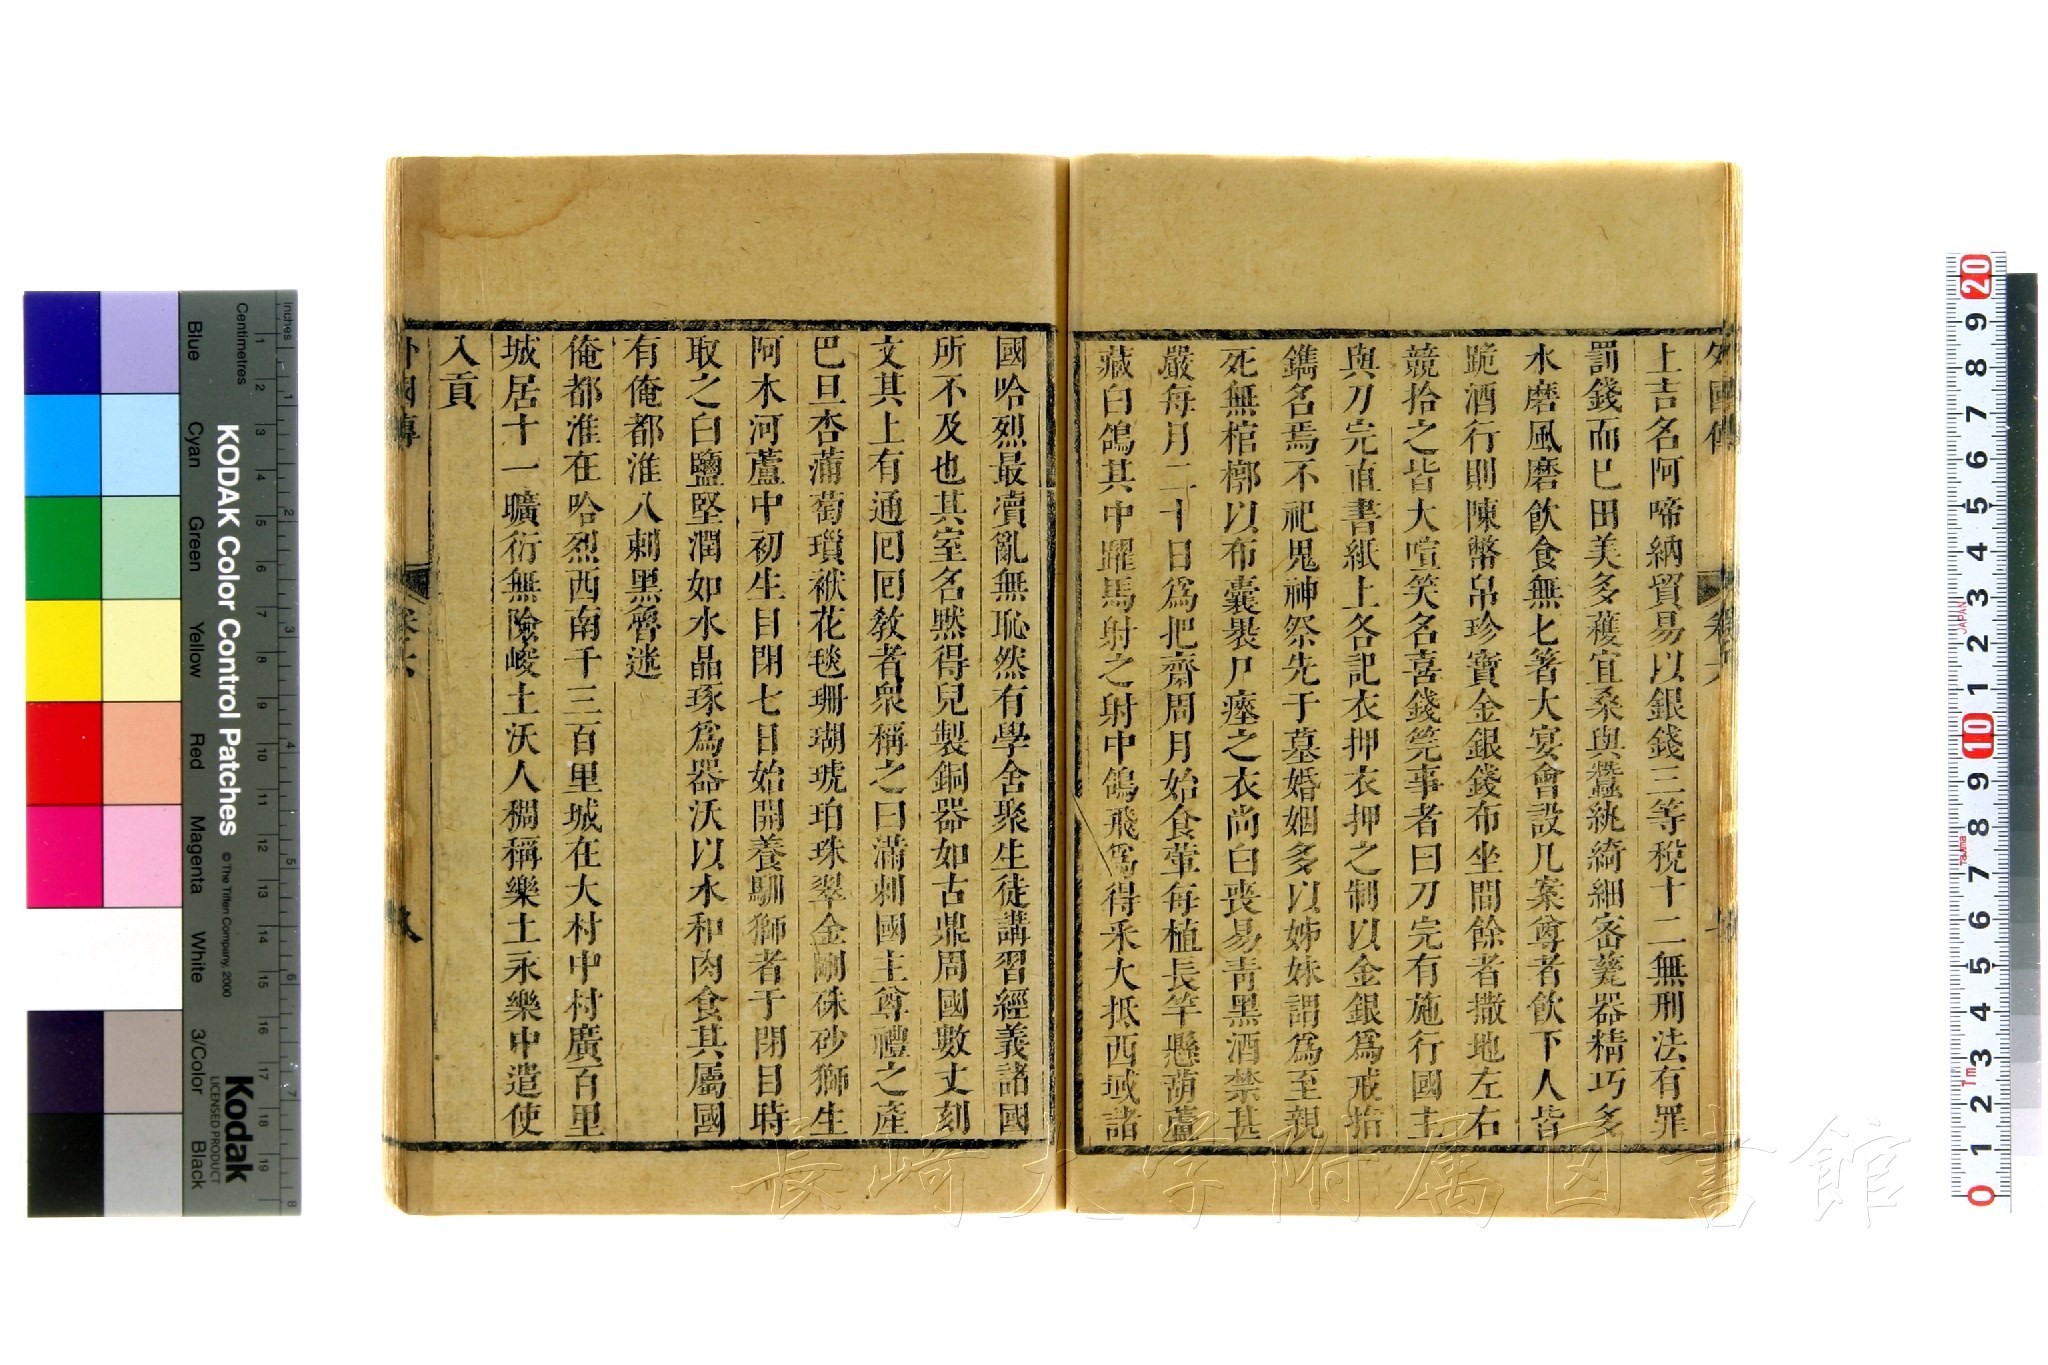 外國傳 卷六
上吉名阿啼納貿易以銀錢三等稅十二無刑法有罪
罰錢而已田美多穫宜桑與蠶絩綺細密甕器精巧多
水磨風磨飲食無匕箸大宴會設几案尊者飲下人皆
跪酒行則陳幣帛珍寶金銀錢布坐間餘者撒地左右
競拾之皆大喧笑名喜錢筦事者曰刀完有施行國主
與刀完直書紙上各記衣押衣押之制以金銀爲戒指
鐫名焉不祀鬼神祭先于墓婚姻多以姊妹謂爲至親
死無棺槨以布囊褁尸瘞之衣尚白喪易青黑酒禁甚
嚴每月二十日爲把齋周月始食葷每植長竿懸葫蘆
藏白鴿其中躍馬射之射中鴿飛爲得釆大抵西域諸
國哈烈最瀆亂無恥然有學舍聚生徒講習經義諸國
所不及也其室名黙得兒製銅器如古鼎周國數丈刻
文其上有通囘囘敎者衆稱之曰滿剌國主尊禮之產
巴旦杏蒲萄瑣袱花毯珊瑚琥珀珠翠金剛硃砂獅生
阿木河蘆中初生目閉七日始開養馴獅者于閉目時
取之白鹽堅潤如水晶琢爲器沃以水和肉食其屬國
有俺都淮八剌黑魯迷
俺都淮在哈烈西南千三百里城在大村中村廣百里
城居十一曠衍無險峻土沃人稠稱樂土永樂中遣使
入貢
外國傳 卷六
Blue Cyan Green Yellow Red Magenta White 3/Color Black
KODAK Color Control Patches
© The Tiffen Company, 2000
Kodak
LICENSED PRODUCT
Centimetres
Inches
1 2 3 4 5 6 7 8 9 10 11 12 13 14 15 16 17 18 19
1 2 3 4 5 6 7 8
20 9 8 7 6 5 4 3 2 1 10 9 8 7 6 5 4 3 2 1 0
JAPAN
Tajima
Tm
長崎大学附属図書館